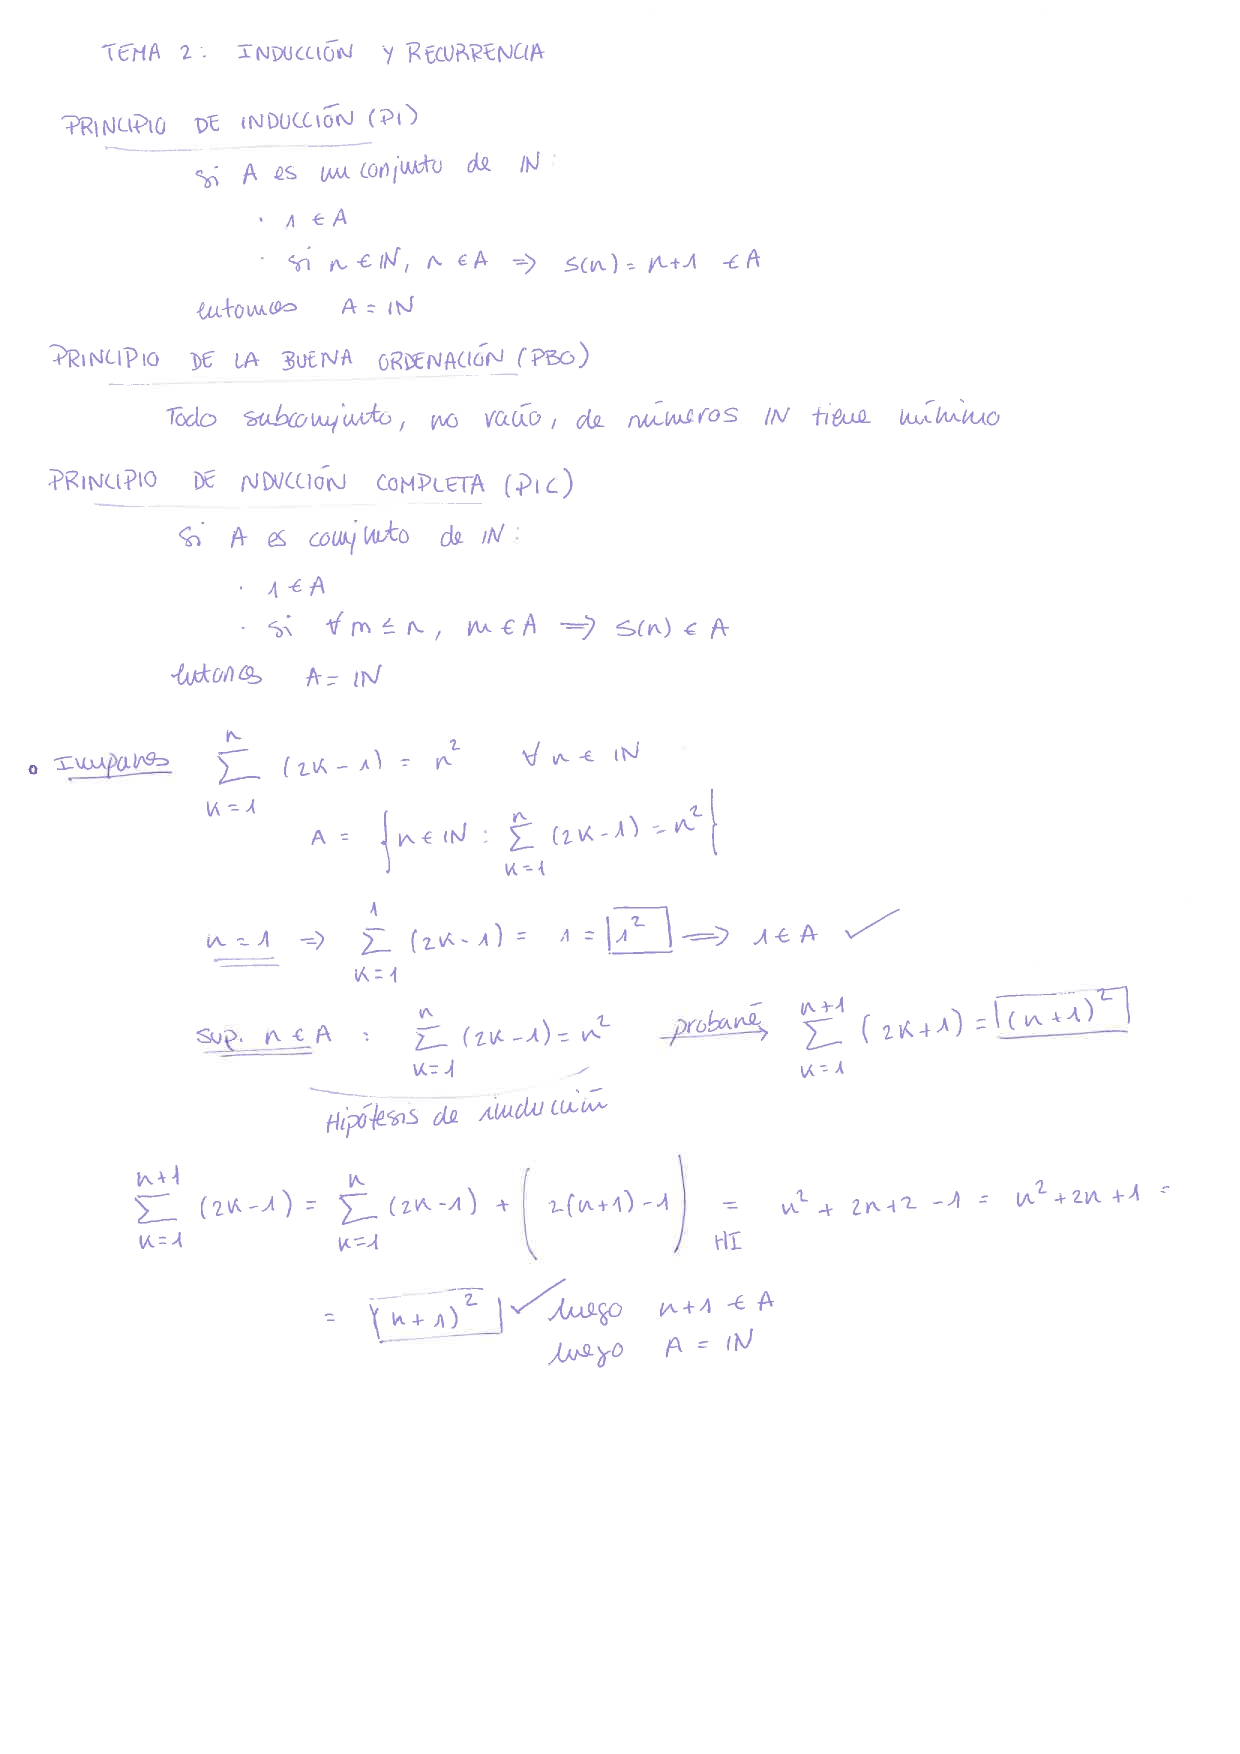 TEMA 2: INDUCCIÓN Y RECURRENCIA
PRINCIPIO DE INDUCCIÓN (PI)
si A es un conjunto de ℕ:
· 1 ∈ A
· si n ∈ ℕ, n ∈ A ⇒ s(n) = n+1 ∈ A
entonces A = ℕ
PRINCIPIO DE LA BUENA ORDENACIÓN (PBO)
Todo subconjunto, no vacío, de números ℕ tiene mínimo
PRINCIPIO DE NDUCCIÓN COMPLETA (PIC)
si A es conjunto de ℕ:
· 1 ∈ A
· si ∀ m ≤ n, m ∈ A ⇒ s(n) ∈ A
entonces A = ℕ
• Impares ∑_{k=1}^{n} (2k-1) = n² ∀ n ∈ ℕ
A = { n ∈ ℕ : ∑_{k=1}^{n} (2k-1) = n² }
n=1 ⇒ ∑_{k=1}^{1} (2k-1) = 1 = 1² ⟹ 1 ∈ A ✓
sup. n ∈ A : ∑_{k=1}^{n} (2k-1) = n² probaré ∑_{k=1}^{n+1} (2k+1) = (n+1)²
Hipótesis de inducción
∑_{k=1}^{n+1} (2k-1) = ∑_{k=1}^{n} (2k-1) + (2(n+1)-1) = n² + 2n+2 -1 = n²+2n+1 =
HI
= (n+1)² ✓ luego n+1 ∈ A
luego A = ℕ